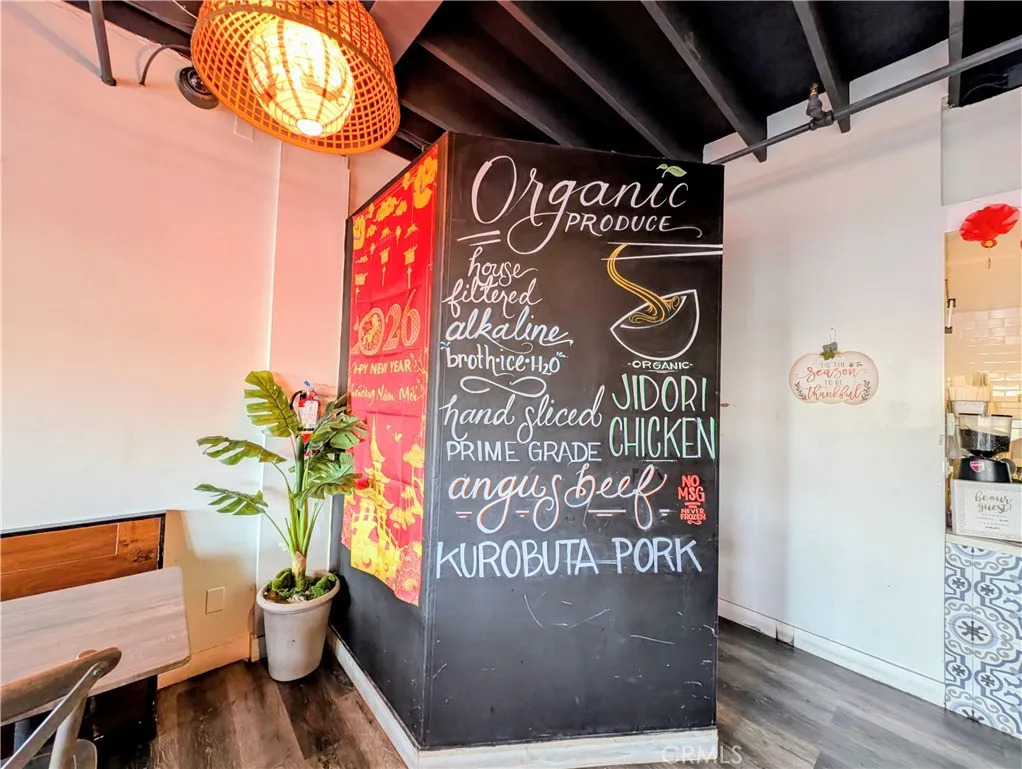 Organic
PRODUCE
house
filtered
alkaline
"broth·ice·H2O"
hand sliced
PRIME GRADE
angus beef
KUROBUTA PORK
·ORGANIC·
JIDORI
CHICKEN
NO
MSG
NEVER
FROZEN
026
PY NEW YEAR
Năm Mới
'TIS THE
season
TO BE
thankful
be our
guest
CRMLS